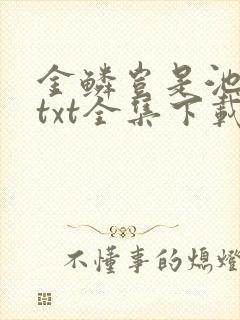 金鳞岂是池
txt全集下载
不懂事的熄灯